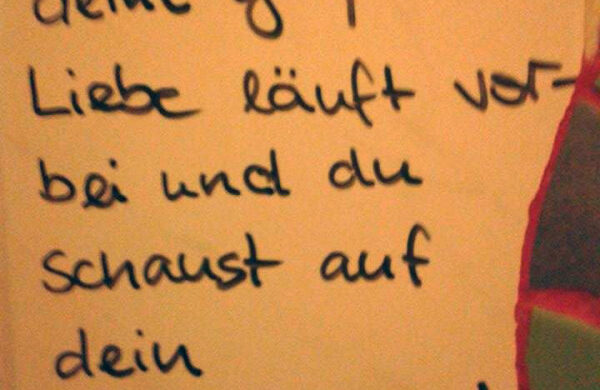 deine
Liebe läuft vor-
bei und du
schaust auf
dein